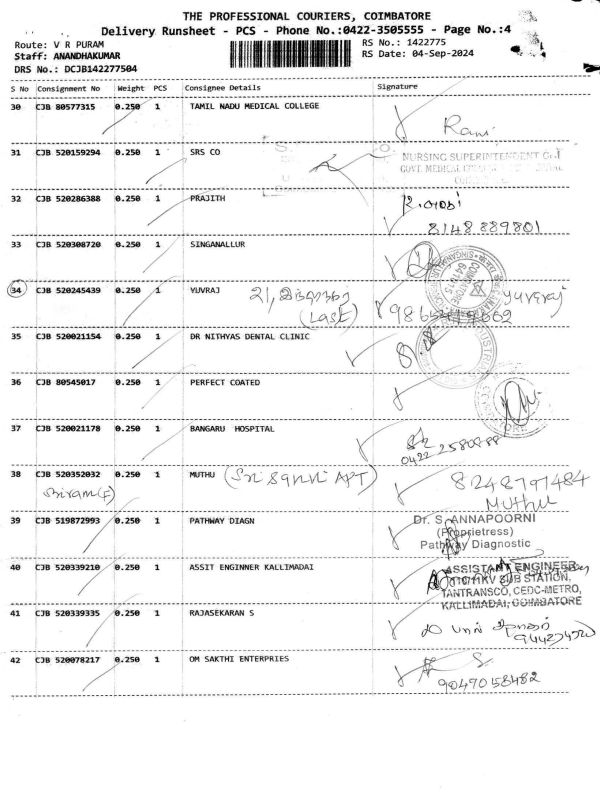 THE PROFESSIONAL COURIERS, COIMBATORE
Delivery Runsheet - PCS - Phone No.:0422-3505555 - Page No.:4
Route: V R PURAM
RS No.: 1422775
Staff: ANANDHAKUMAR
RS Date: 04-Sep-2024
DRS No.: DCJB142277504
S No Consignment No Weight PCS Consignee Details Signature
30 CJB 80577315 0.250 1 TAMIL NADU MEDICAL COLLEGE
Rani
31 CJB 520159294 0.250 1 SRS CO
NURSING SUPERINTENDENT
GOVT. MEDICAL
32 CJB 520286388 0.250 1 PRAJITH
8148 889801
33 CJB 520308720 0.250 1 SINGANALLUR
34 CJB 520245439 0.250 1 YUVRAJ
(Last)
yuveraj
35 CJB 520021154 0.250 1 DR NITHYAS DENTAL CLINIC
36 CJB 80545017 0.250 1 PERFECT COATED
37 CJB 520021178 0.250 1 BANGARU HOSPITAL
0422
38 CJB 520352032 0.250 1 MUTHU
8248791484
Muthu
39 CJB 519872993 0.250 1 PATHWAY DIAGN
Dr. S. ANNAPOORNI
(Proprietress)
Pathway Diagnostic
40 CJB 520339210 0.250 1 ASSIT ENGINNER KALLIMADAI
ASSISTANT ENGINEER
SUB STATION,
TANTRANSCO, CEDC-METRO,
KALLIMADAI, COIMBATORE
41 CJB 520339335 0.250 1 RAJASEKARAN S
42 CJB 520078217 0.250 1 OM SAKTHI ENTERPRIES
9047058482